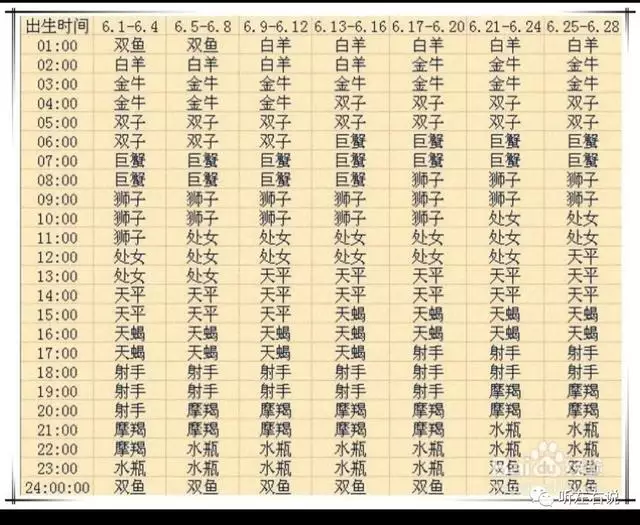 出生时间 6.1-6.4 6.5-6.8 6.9-6.12 6.13-6.16 6.17-6.20 6.21-6.24 6.25-6.28
01:00 双鱼 双鱼 白羊 白羊 白羊 白羊 白羊
02:00 白羊 白羊 白羊 白羊 金牛 金牛 金牛
03:00 金牛 金牛 金牛 金牛 金牛 金牛 金牛
04:00 金牛 金牛 金牛 双子 双子 双子 双子
05:00 双子 双子 双子 双子 双子 双子 双子
06:00 双子 双子 双子 巨蟹 巨蟹 巨蟹 巨蟹
07:00 巨蟹 巨蟹 巨蟹 巨蟹 巨蟹 巨蟹 巨蟹
08:00 巨蟹 巨蟹 巨蟹 巨蟹 狮子 狮子 狮子
09:00 狮子 狮子 狮子 狮子 狮子 狮子 狮子
10:00 狮子 狮子 狮子 狮子 狮子 处女 处女
11:00 狮子 处女 处女 处女 处女 处女 处女
12:00 处女 处女 处女 处女 处女 处女 天平
13:00 处女 处女 天平 天平 天平 天平 天平
14:00 天平 天平 天平 天平 天平 天平 天平
15:00 天平 天平 天平 天平 天蝎 天蝎 天蝎
16:00 天蝎 天蝎 天蝎 天蝎 天蝎 天蝎 天蝎
17:00 天蝎 天蝎 天蝎 天蝎 射手 射手 射手
18:00 射手 射手 射手 射手 射手 射手 射手
19:00 射手 射手 射手 射手 射手 摩羯 摩羯
20:00 射手 摩羯 摩羯 摩羯 摩羯 摩羯 摩羯
21:00 摩羯 摩羯 摩羯 摩羯 摩羯 水瓶 水瓶
22:00 摩羯 水瓶 水瓶 水瓶 水瓶 水瓶 水瓶
23:00 水瓶 水瓶 水瓶 水瓶 水瓶 双鱼 双鱼
24:00:00 双鱼 双鱼 双鱼 双鱼 双鱼 双鱼 双鱼
听左右说